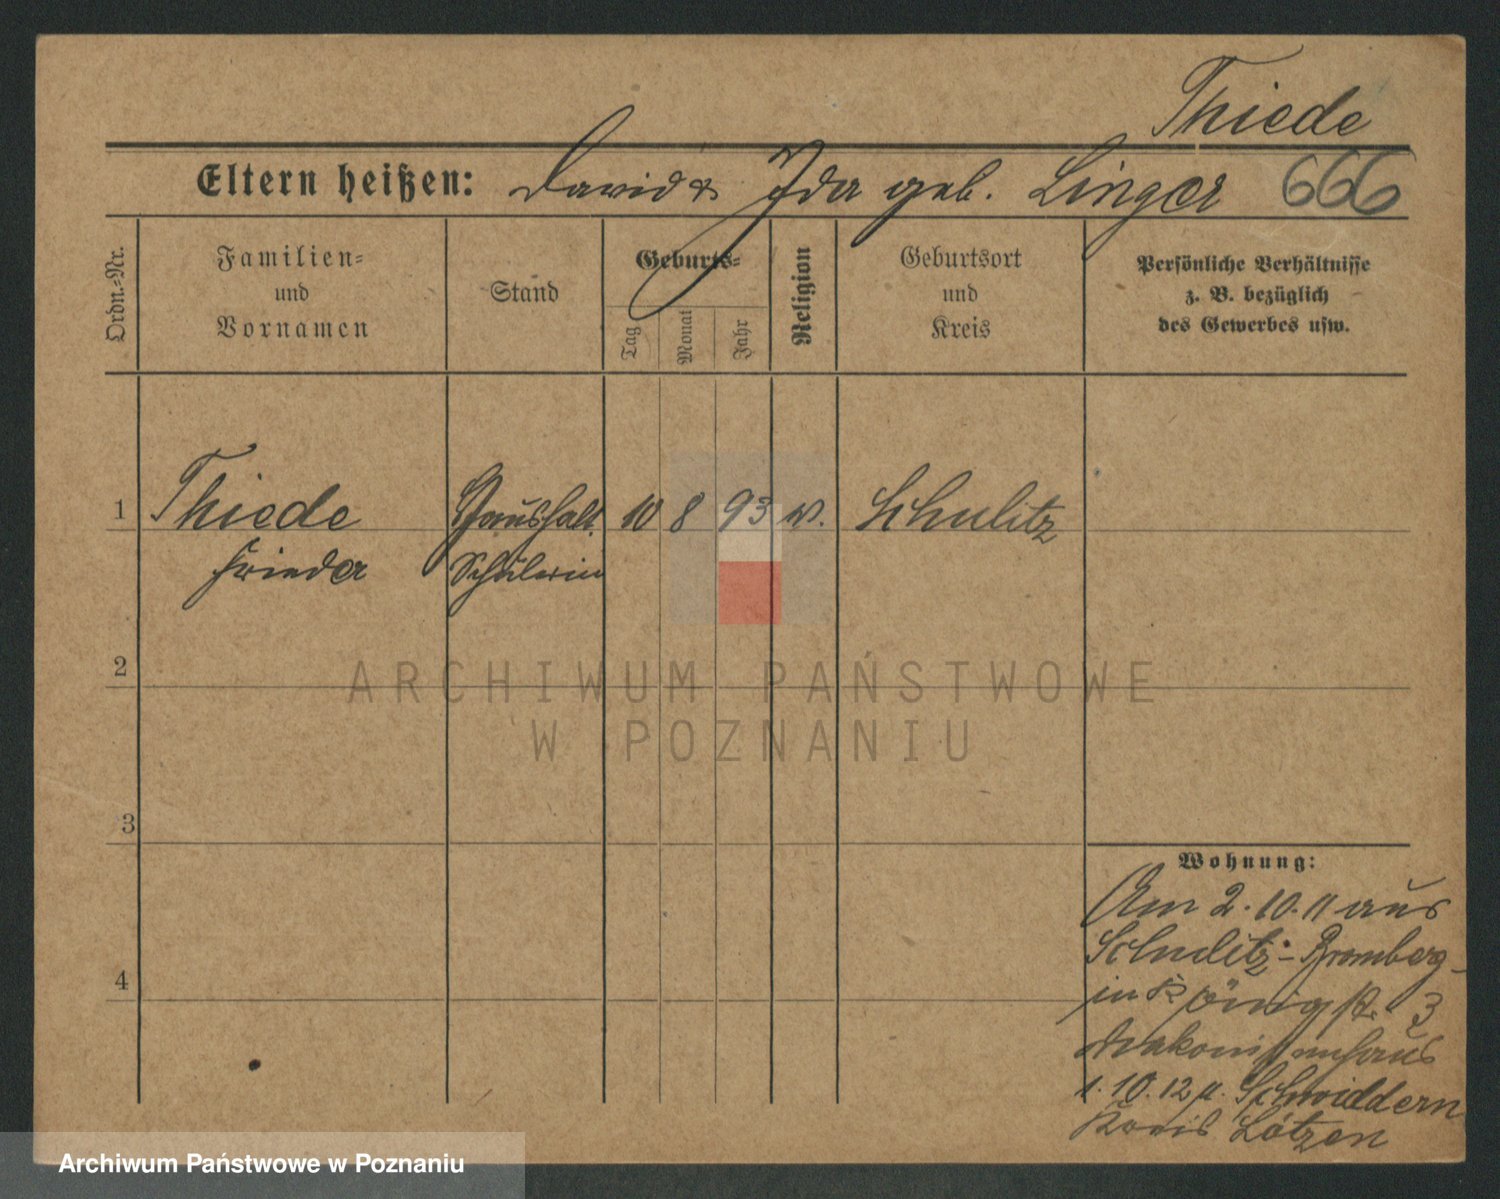 Thiede
Eltern heißen: David & Ida geb. Linger 666
Ordn.-Nr.
Familien-
und
Vornamen
Stand
Geburts-
Tag
Monat
Jahr
Religion
Geburtsort
und
Kreis
Persönliche Verhältnisse
z. B. bezüglich
des Gewerbes usw.
1 Thiede Haushalt. 10 8 93 Schulitz
Frieda Schülerin
2
3
4
Wohnung:
Am 2.10.11 aus
Schulitz-Bromberg
in Königstr. 3
Diakonissenhaus
1.10.12 n. Schwiddern
Kreis Lötzen
ARCHIWUM PAŃSTWOWE
W POZNANIU
Archiwum Państwowe w Poznaniu